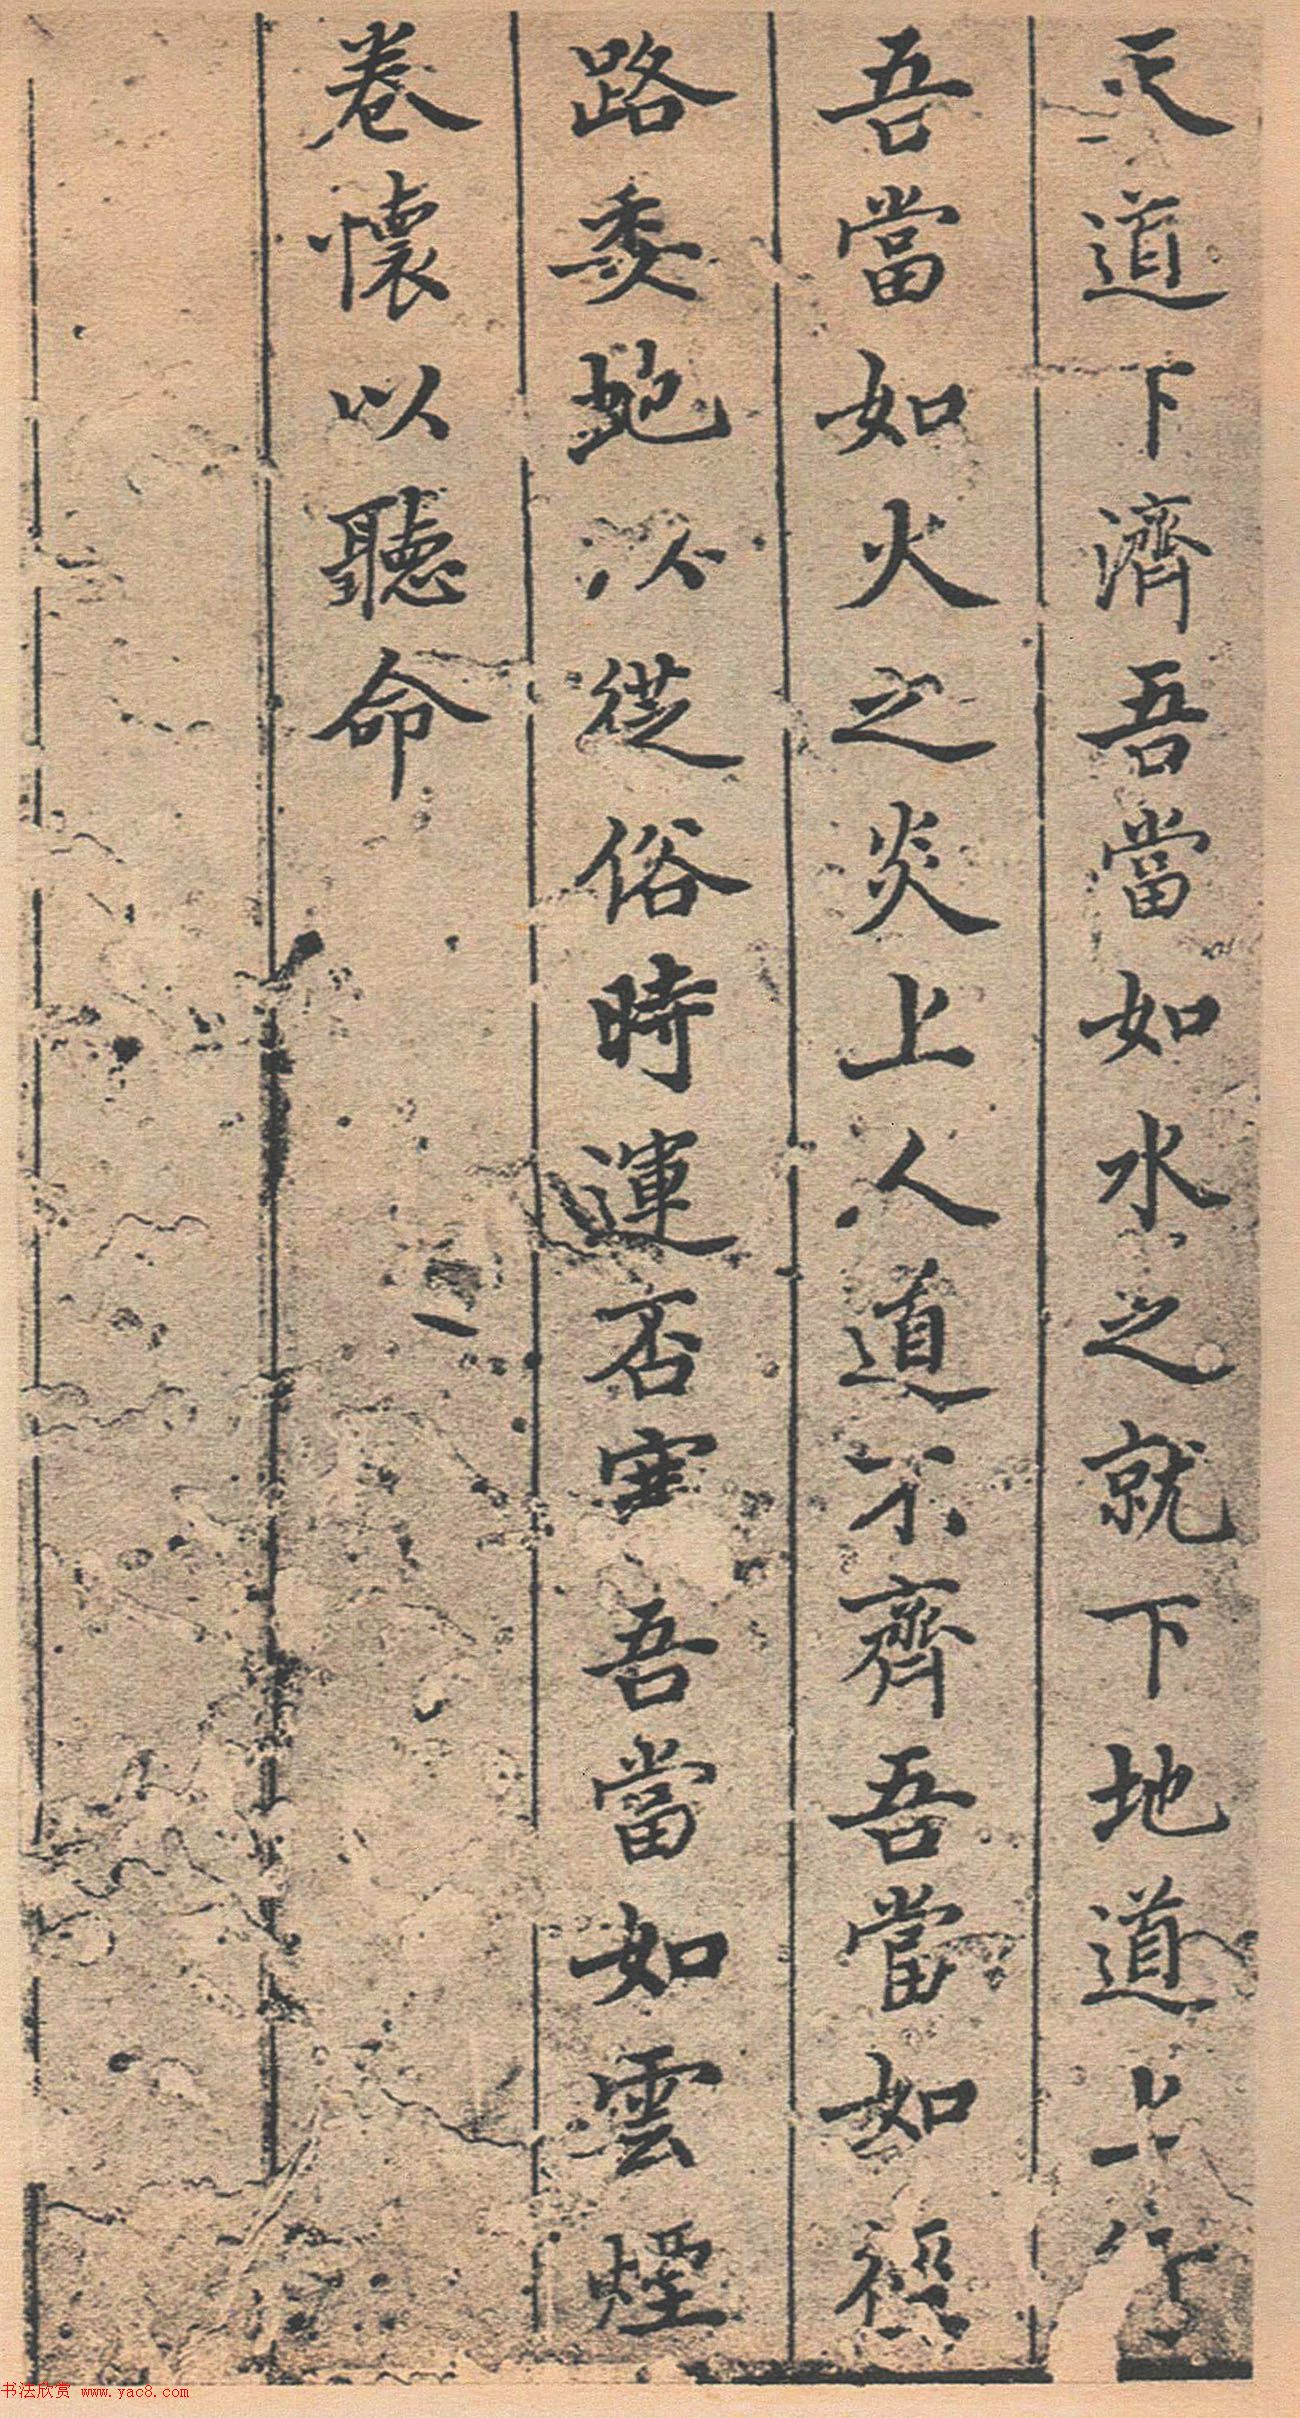 天道下濟吾當如水之就下地道上行
吾當如火之炎上人道不齊吾當如徑
路委蛇以從俗時運否塞吾當如雲煙
卷懷以聽命
书法欣赏 www.yac8.com